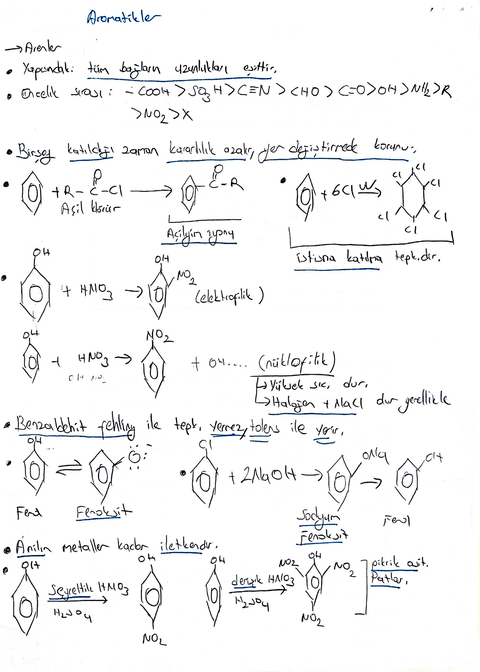 Aromatikler
→ Arenler
• Yapındaki tüm bağların uzunlukları eşittir.
• Öncelik sırası: -COOH > SO₃H > C≡N > CHO > C=O > OH > NH₂ > R
> NO₂ > X
• Birşey katıldığı zaman kararlılık azalır, yer değiştirmede korunur.
• + R-C-Cl → C-R
O O
Açil klorür
Açilleşme
• + 6Cl UV → Cl Cl Cl Cl Cl Cl
istisna katılma tepk.dir.
• OH + HNO₃ → OH NO₂ (elektrofilik)
OH + HNO₃ → NO₂ + OH.... (nüklofilik)
→ Yüksek sıc. dur.
→ Halojen + NaCl dur genellikle
• Benzaldehit fehling ile tepk. vermez, tolens ile verir.
• OH ⇌ O
Fenol Fenoksit
• Cl + 2NaOH → ONa → OH
Sodyum Fenoksit
Fenol
• Anilin metaller kadar iletkendir.
• OH Seyreltik HNO₃ H₂SO₄ → OH NO₂
OH derişik HNO₃ H₂SO₄ → OH NO₂ NO₂ NO₂
pikrik asit.
Patlar.